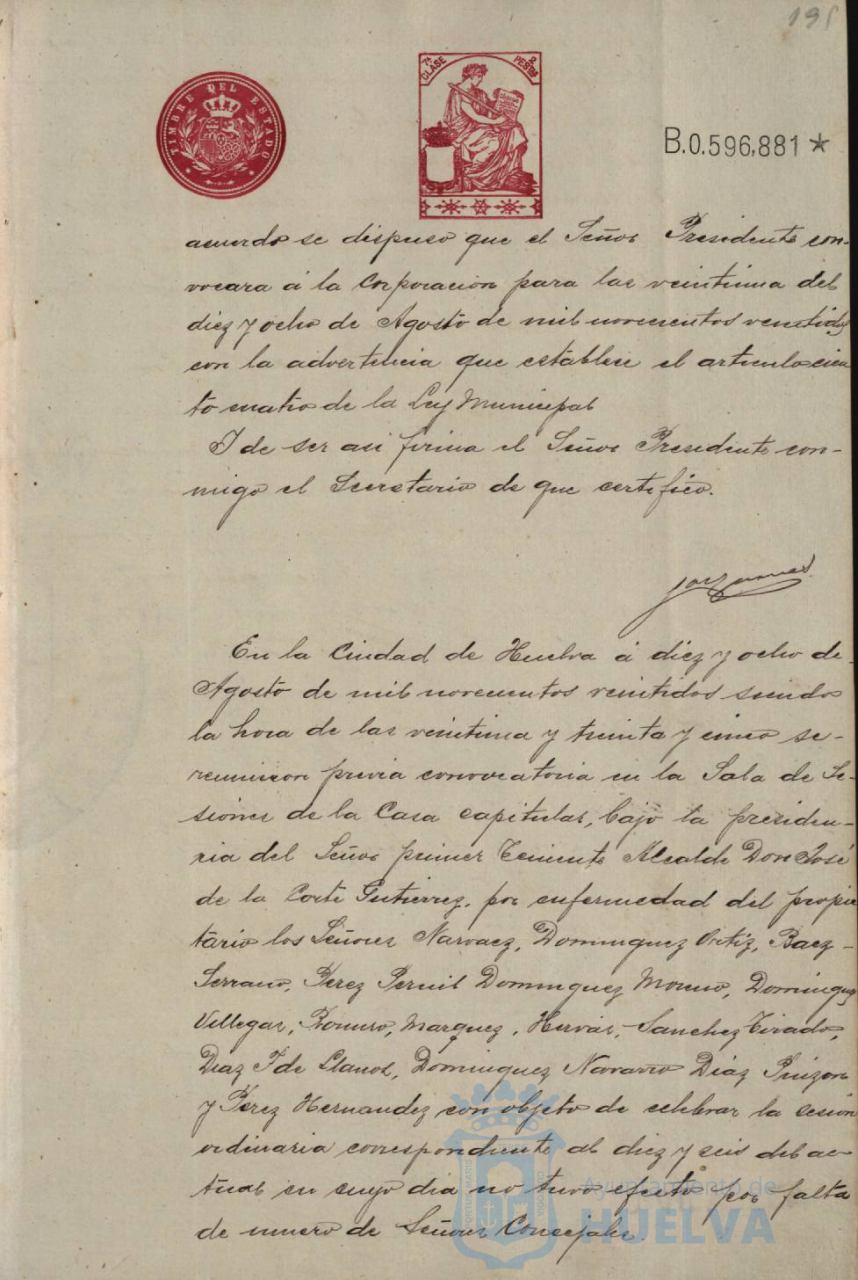 191
TIMBRE DEL ESTADO
7ª CLASE
2 PESETAS
B.0.596,881 *
acuerdo se dispuso que el Señor Presidente con-
vocara á la Corporación para las veintiuna del
diez y ocho de Agosto de mil novecientos veintidos
con la advertencia que establece el articulo cien
to cuatro de la Ley Municipal
I de ser asi firma el Señor Presidente con-
migo el Secretario de que certifico.
En la Ciudad de Huelva á diez y ocho de
Agosto de mil novecientos veintidos siendo
la hora de las veintiuna y treinta y cinco se-
reunieron previa convocatoria en la Sala de Se-
siones de la Casa capitular, bajo la presiden-
cia del Señor primer Teniente Alcalde Don José
de la Corte Gutierrez, por enfermedad del propie
tario los Señores Narvaez, Dominguez Ortiz, Baez-
Serrano, Perez Pernil Dominguez Moreno, Dominguez
Villegas, Romero, Marquez, Hervás, Sanchez Tirado,
Diaz I de Llanos, Dominguez Navarro Diaz Pinzon
y Perez Hernandez con objeto de celebrar la sesión
ordinaria correspondiente al diez y seis del ac-
tual en cuyo dia no tuvo efecto por falta
de numero de Señores Concejales.
Ayuntamiento de
HUELVA